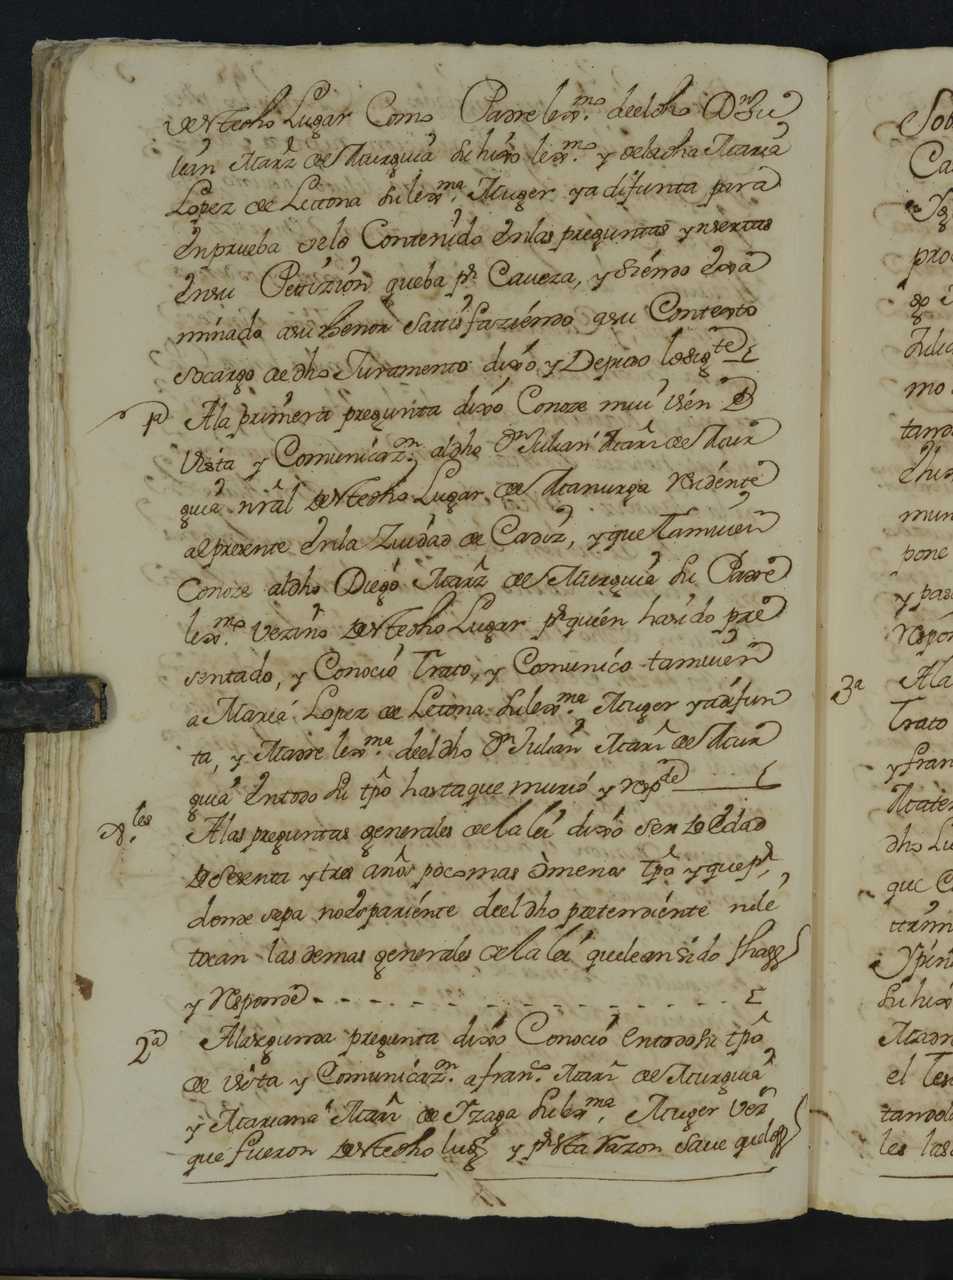 deste dho Lugar Como Padre lexmo. deel dho Dn Ju
lian Marz de Murguia su hixo lexmo. y dela dha Maria
Lopez de Letona su lexma. Muger ya difunta para
en prueba de lo Contenido en las preguntas ynsertas
en su Petizion que ba pr Caveza, y siendo exsa
minado a su thenor Sattisfaziendo a su Contexto
so cargo de dho Juramento dixo y Depuso lo sigte
1a A la primera pregunta dixo Conoze mui bien de
Vista y Comunicazn. al dho Dn Julian Marz de Mur
guia nral deste dho Lugar de Manurga residente
al presente en la Ziudad de Cadiz, y que tamvien
Conoze al dho Diego Marz de Murguia su Padre
lexmo. vezino deste dho Lugar pr quien ha sido pre
sentado, y Conocio Trato, y Comunico tamvien
a Maria Lopez de Letona su lexma. Muger ya difun
ta, y Madre lexma. deel dho Dn Julian Marz de Mur
guia en todo su tpo hasta que murio y respde
Gles. A las preguntas generales de la lei dixo ser de Edad
de sesenta y tres años poco mas o menos tpo y que pr
donde sepa no es pariente deel dho pretendiente ni le
tocan las demas generales de la lei que le an sido
y Responde
2a A la segunda pregunta dixo Conocio en todo su tpo
de vista y Comunicazn. a franco. Marz de Murguia
y Mariana Marz de Yzaga su lexma. Muger vez
que fueron deste dho lugr y pr esta razon save que los
Sob
Ca
pro
Julia
mo
tando
mun
pone
y pas
Respon
3a Ala
Trato
y fran
Mater
dho Lu
que C
su hixo
Madre
el Tes
tando
les las